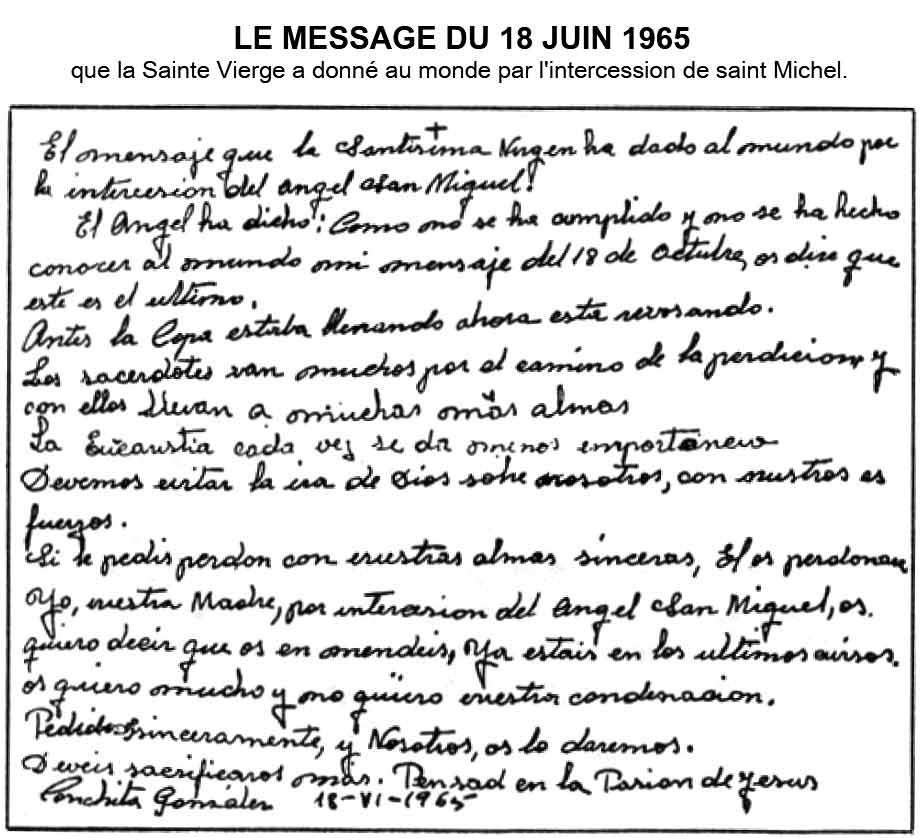 LE MESSAGE DU 18 JUIN 1965
que la Sainte Vierge a donné au monde par l'intercession de saint Michel.
El mensaje que la Santisima Virgen ha dado al mundo por
la intercesion del angel San Miguel!
El Angel ha dicho: Como no se ha cumplido y no se ha hecho
conocer al mundo mi mensaje del 18 de Octubre, os dire que
este es el ultimo.
Antes la Copa estaba llenando ahora esta revosando.
Los sacerdotes van muchos por el camino de la perdicion, y
con ellos llevan a muchas más almas
La Eucaristia cada vez se da menos importancia
Devemos evitar la ira de Dios sobre nosotros, con nuestros es
fuerzos.
Si le pedis perdon con vuestras almas sinceras, El os perdonara
Yo, vuestra Madre, por intercesion del Angel San Miguel, os.
quiero decir que os en mendeis, Ya estais en los ultimos avisos.
os quiero mucho y no quiero vuestra condenacion.
Pedidos sinceramente, y Nosotros, os lo daremos.
Deveis sacrificaros más. Pensad en la Pasion de Jesus
Conchita González 18-VI-1965